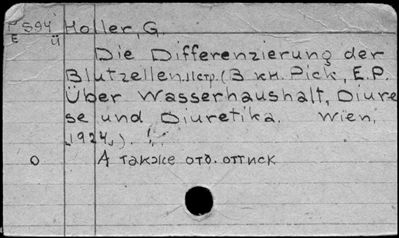 P 594 Holler, G.
E ü
Die Differenzierung der
Blutzellen. 11стр. (В кн. Pick, E.P.
Über Wasserhaushalt, Diure-
se und Diuretika. Wien,
1924,).
О А также отд. оттиск